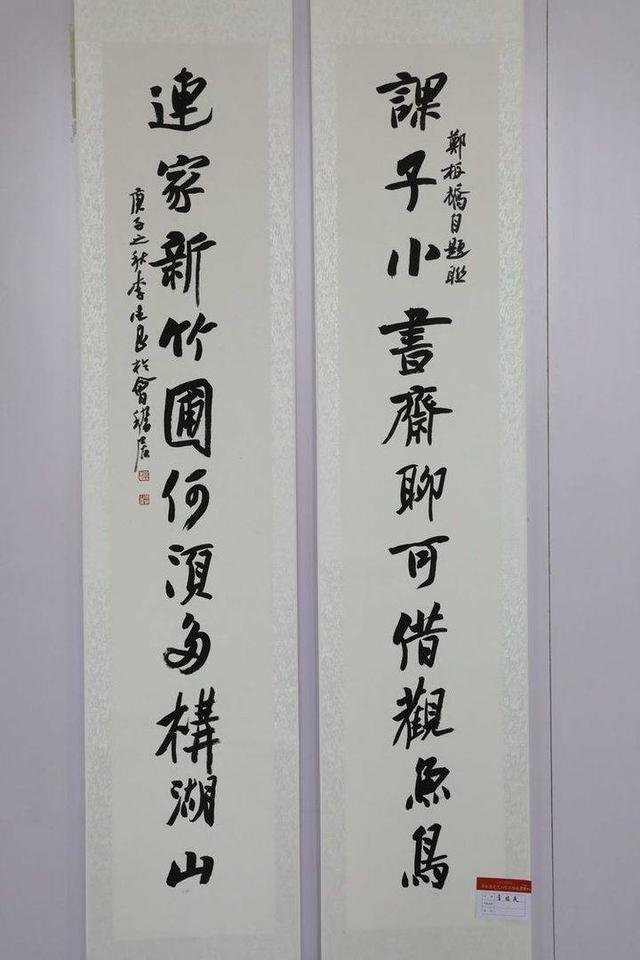 課子小書齋聊可借觀魚鳥
鄭板橋自題聯
連家新竹圃何須多構湖山
庚子之秋李